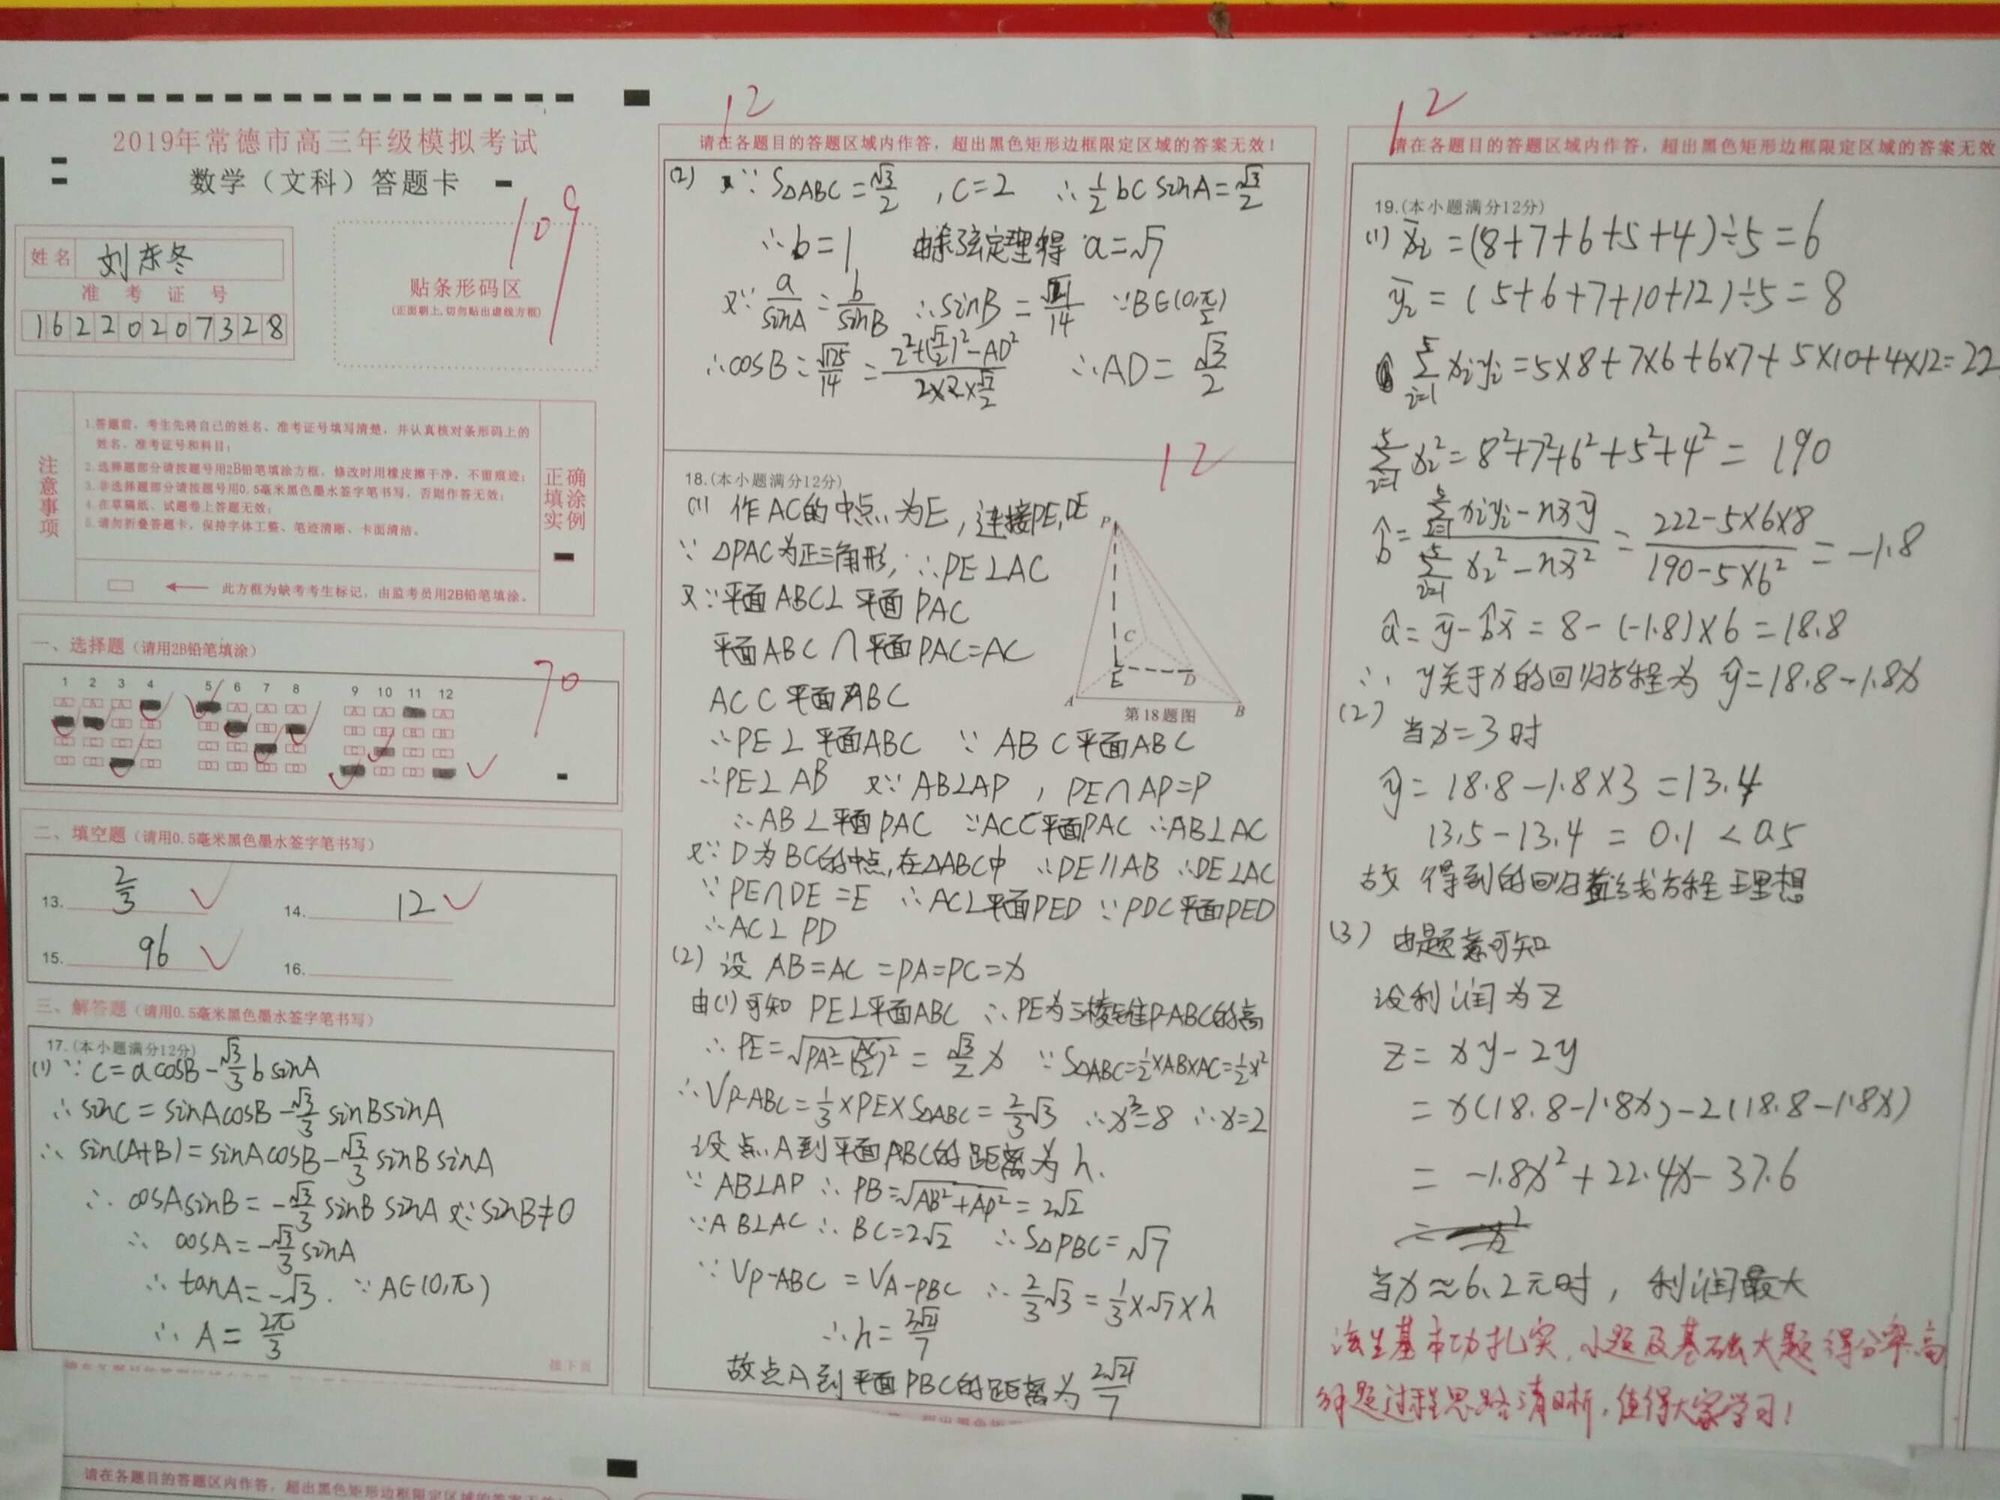 2019年常德市高三年级模拟考试
数学（文科）答题卡
109
姓名 刘东冬
准考证号
16220207328
贴条形码区
(正面朝上,切勿贴出虚线方框)
注意事项
1.答题前，考生先将自己的姓名、准考证号填写清楚，并认真核对条形码上的
姓名、准考证号和科目；
2.选择题部分请按题号用2B铅笔填涂方框，修改时用橡皮擦干净，不留痕迹；
3.非选择题部分请按题号用0.5毫米黑色墨水签字笔书写，否则作答无效；
4.在草稿纸、试题卷上答题无效；
5.请勿折叠答题卡，保持字体工整、笔迹清晰、卡面清洁。
正确填涂实例
此方框为缺考考生标记，由监考员用2B铅笔填涂。
一、选择题（请用2B铅笔填涂）
70
1 2 3 4 5 6 7 8 9 10 11 12
二、填空题（请用0.5毫米黑色墨水签字笔书写）
13. 2/3 14. 12
15. 96 16.
三、解答题（请用0.5毫米黑色墨水签字笔书写）
17.(本小题满分12分)
(1) ∵ c=acosB-√3/3 bsinA
∴ sinC=sinAcosB-√3/3 sinBsinA
∴ sin(A+B)=sinAcosB-√3/3 sinBsinA
∴ cosAsinB=-√3/3 sinBsinA 又∵sinB≠0
∴ cosA=-√3/3 sinA
∴ tanA=-√3. ∵ A∈(0,π)
∴ A=2π/3
接下面
12
请在各题目的答题区域内作答，超出黑色矩形边框限定区域的答案无效！
(2) ∵ S△ABC=√3/2 ,c=2 ∴ 1/2 bcsinA=√3/2
∴b=1 由余弦定理得 a=√7
又∵ a/sinA=b/sinB ∴sinB=√21/14 ∵B∈(0,π/2)
∴cosB=√175/14=(2²+(√7/2)²-AD²)/(2×2×√7/2) ∴AD=√3/2
12
18.(本小题满分12分)
(1) 作AC的中点为E,连接PE,DE
∵ △PAC为正三角形,∴PE⊥AC
又∵平面ABC⊥平面PAC
平面ABC∩平面PAC=AC
AC⊂平面ABC
∴PE⊥平面ABC ∵ AB⊂平面ABC
∴PE⊥AB 又∵AB⊥AP , PE∩AP=P
∴AB⊥平面PAC ∵AC⊂平面PAC ∴AB⊥AC
又∵D为BC的中点,在△ABC中 ∴DE∥AB ∴DE⊥AC
∵ PE∩DE=E ∴AC⊥平面PED ∵PD⊂平面PED
∴AC⊥PD
P
C
E
D
A
B
第18题图
(2) 设 AB=AC=PA=PC=x
由(1)可知 PE⊥平面ABC ∴PE为三棱锥P-ABC的高
∴ PE=√(PA²-(AC/2)²)=√3/2 x ∵S△ABC=1/2×AB×AC=1/2x²
∴VP-ABC=1/3×PE×S△ABC=2/3√3 ∴x³=8 ∴x=2
设点A到平面PBC的距离为h.
∵ AB⊥AP ∴ PB=√(AB²+AP²)=2√2
∵AB⊥AC ∴ BC=2√2 ∴S△PBC=√7
∵ VP-ABC=VA-PBC ∴ 2/3√3=1/3×√7×h
∴h=2√21/7
故点A到平面PBC的距离为2√21/7
12
请在各题目的答题区域内作答，超出黑色矩形边框限定区域的答案无效
19.(本小题满分12分)
(1) x̄i=(8+7+6+5+4)÷5=6
ȳi=(5+6+7+10+12)÷5=8
5∑i=1 xiyi=5×8+7×6+6×7+5×10+4×12=22
5∑i=1 xi²=8²+7²+6²+5²+4²=190
b̂=(5∑i=1 xiyi-nx̄ȳ)/(5∑i=1 xi²-nx̄²)=(222-5×6×8)/(190-5×6²)=-1.8
â=ȳ-b̂x̄=8-(-1.8)×6=18.8
∴ y关于x的回归方程为 ŷ=18.8-1.8x
(2) 当x=3时
ŷ=18.8-1.8×3=13.4
13.5-13.4=0.1<0.5
故得到的回归直线方程理想
(3) 由题意可知
设利润为z
z=xy-2y
=x(18.8-1.8x)-2(18.8-1.8x)
=-1.8x²+22.4x-37.6
当x≈6.2元时，利润最大
该生基本功扎实,小题及基础大题得分率高
解题过程思路清晰,值得大家学习!
请在各题目的答题区内作答，超出黑色矩形边框限定区域的答案无效